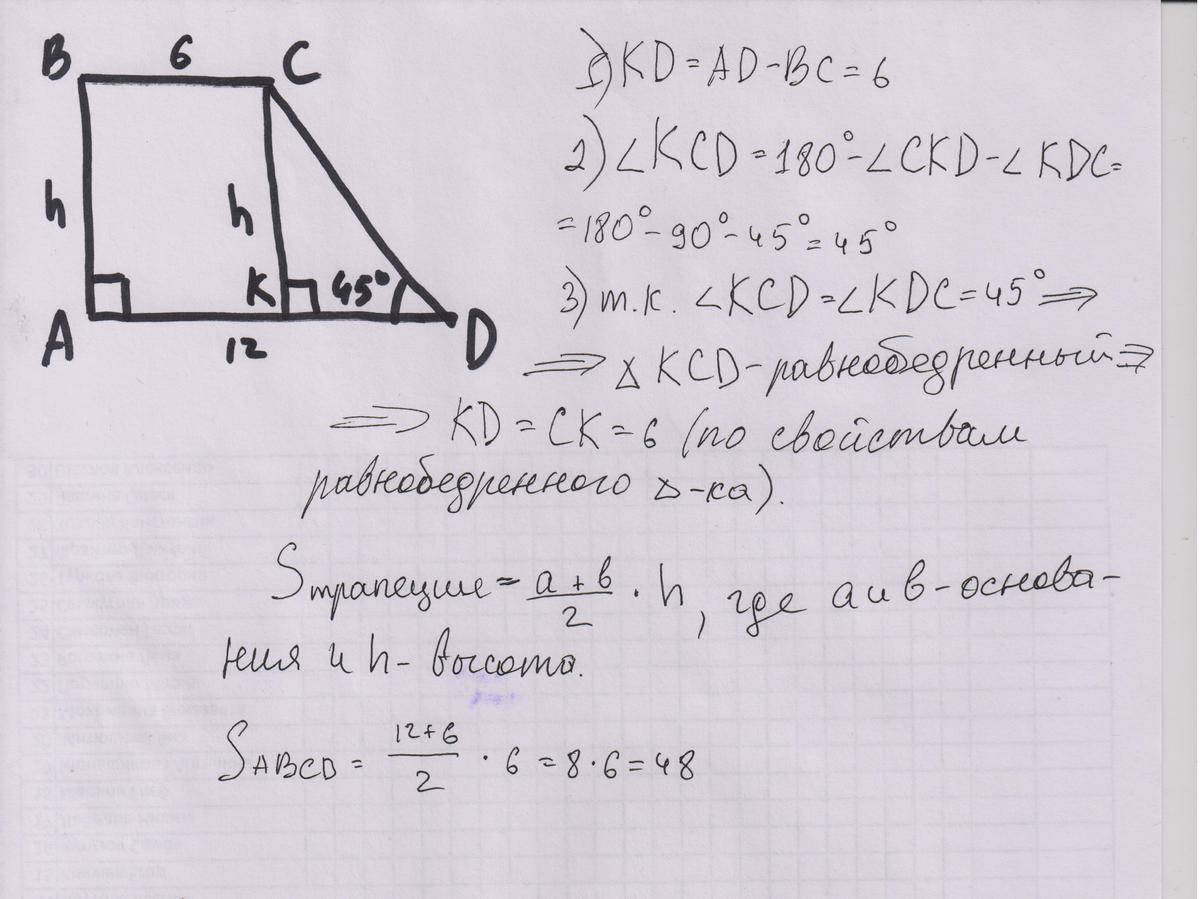 B 6 C
h h
K 45°
A 12 D
1) KD = AD - BC = 6
2) ∠KCD = 180° - ∠CKD - ∠KDC =
= 180° - 90° - 45° = 45°
3) т.к. ∠KCD = ∠KDC = 45° ⇒
⇒ Δ KCD - равнобедренный ⇒
⇒ KD = CK = 6 (по свойствам
равнобедренного Δ-ка).
Sтрапеции = (a + b)/2 · h, где a и b - основа-
ния и h - высота.
SABCD = (12+6)/2 · 6 = 8 · 6 = 48